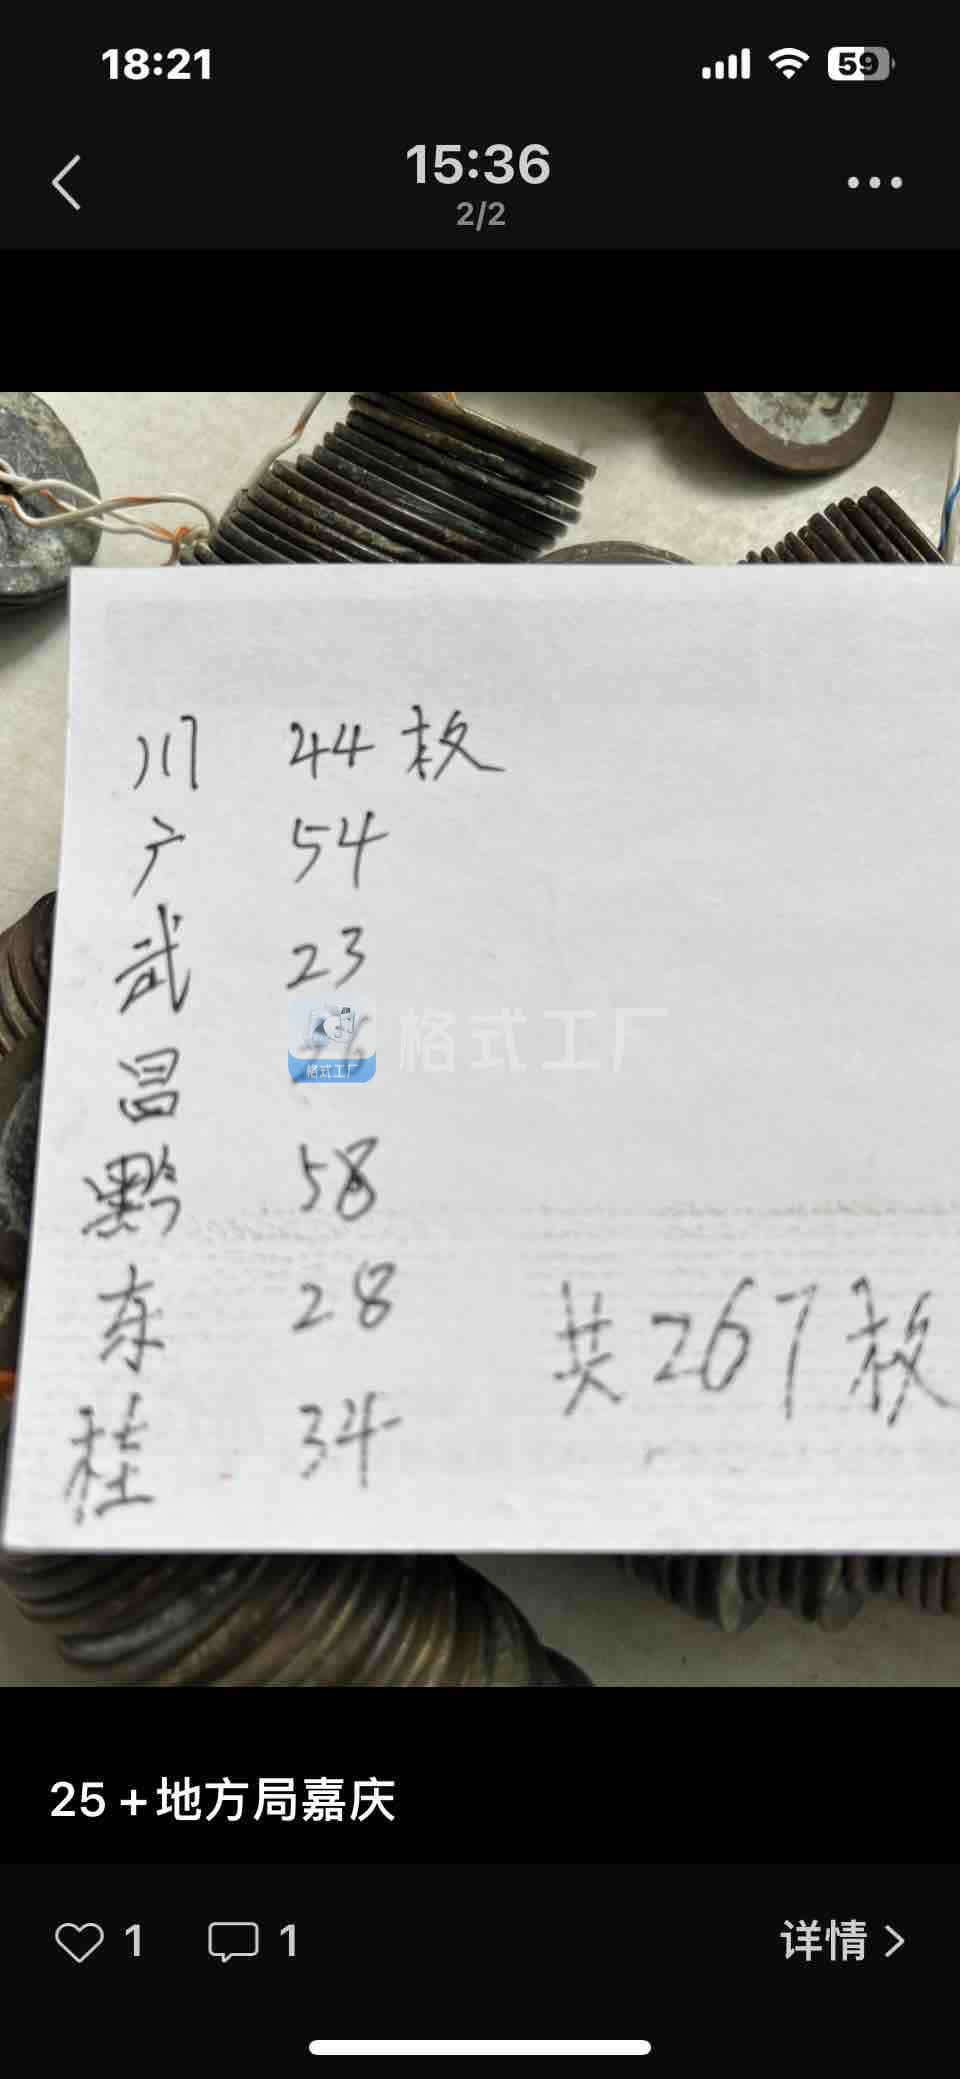 18:21
59
15:36
2/2
川 44枚
广 54
武 23
昌 26
黔 58
东 28
桂 34
共267枚
格式工厂
格式工厂
25+地方局嘉庆
1
1
详情